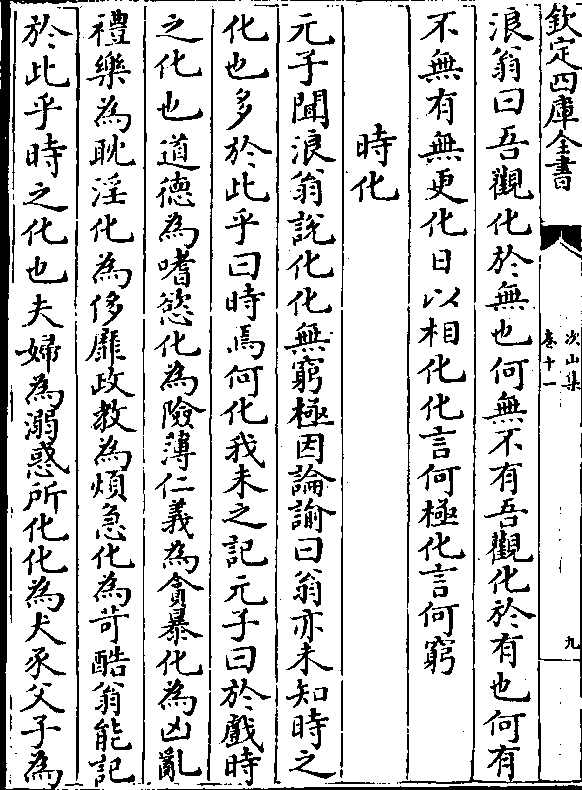 欽定四庫全書
次山集
卷十一
九
浪翁曰吾觀化於無也何無不有吾觀化於有也何有
不無有無更化日以相化化言何極化言何窮
時化
元子聞浪翁說化化無窮極因論諭曰翁亦未知時之
化也多於此乎曰時焉何化我未之記元子曰於戲時
之化也道德為嗜慾化為險薄仁義為貪暴化為凶亂
禮樂為耽淫化為侈靡政教為煩急化為苛酷翁能記
於此乎時之化也夫婦為溺惑所化化為犬豕父子為